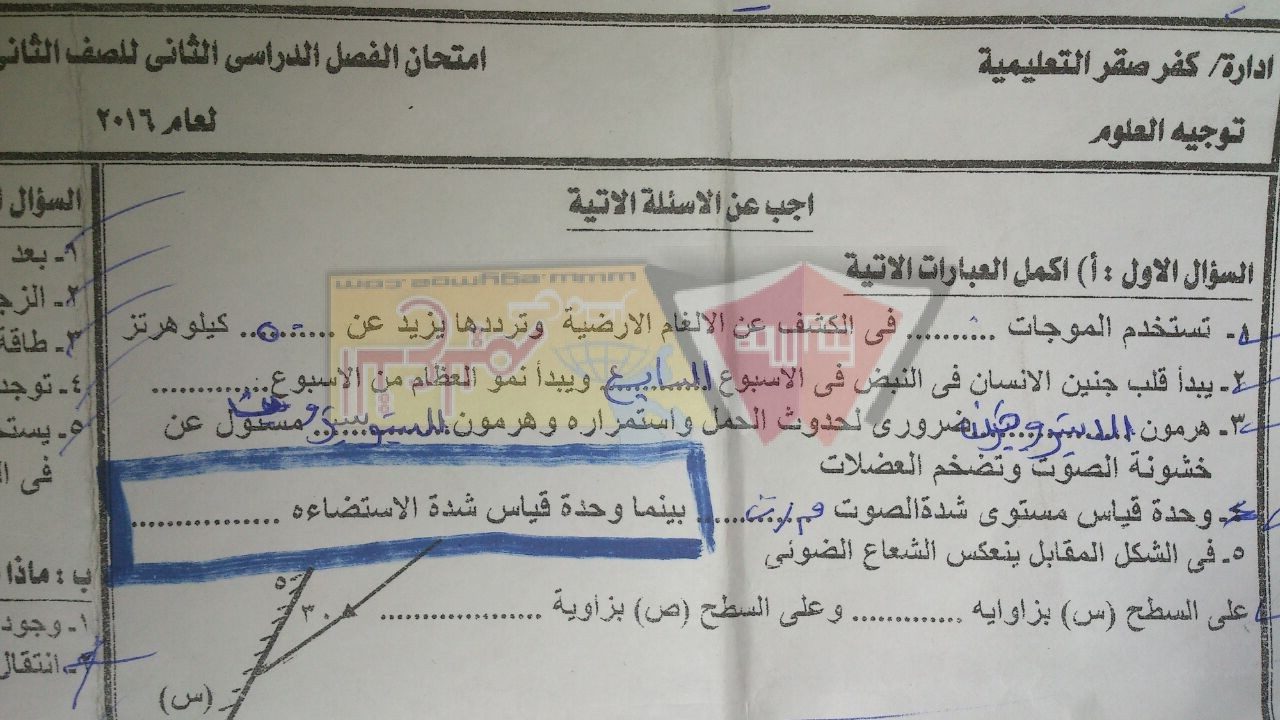 ادارة/ كفر صقر التعليمية
امتحان الفصل الدراسى الثانى للصف الثانى
توجيه العلوم
لعام ٢٠١٦
اجب عن الاسئلة الاتية
السؤال الاول : أ) اكمل العبارات الاتية
١ـ تستخدم الموجات ........... فى الكشف عن الالغام الارضية وترددها يزيد عن ........... كيلوهرتز
٢ـ يبدأ قلب جنين الانسان فى النبض فى الاسبوع السابع ويبدأ نمو العظام من الاسبوع..............
٣ـ هرمون ........... ضرورى لحدوث الحمل واستمراره وهرمون ........... مسئول عن
خشونة الصوت وتضخم العضلات
٤ـ وحدة قياس مستوى شدةالصوت ........... بينما وحدة قياس شدة الاستضاءه .................
٥ـ فى الشكل المقابل ينعكس الشعاع الضوئى
على السطح (س) بزاوايه ............. وعلى السطح (ص) بزاوية ..................
٣٠
(س)
السؤال
١ـ بعد
٢ـ الزج
٣ـ طاقة
٤ـ توجد
٥ـ يستخ
فى ال
ب : ماذا
١ـ وجود
٢ـ انتقال